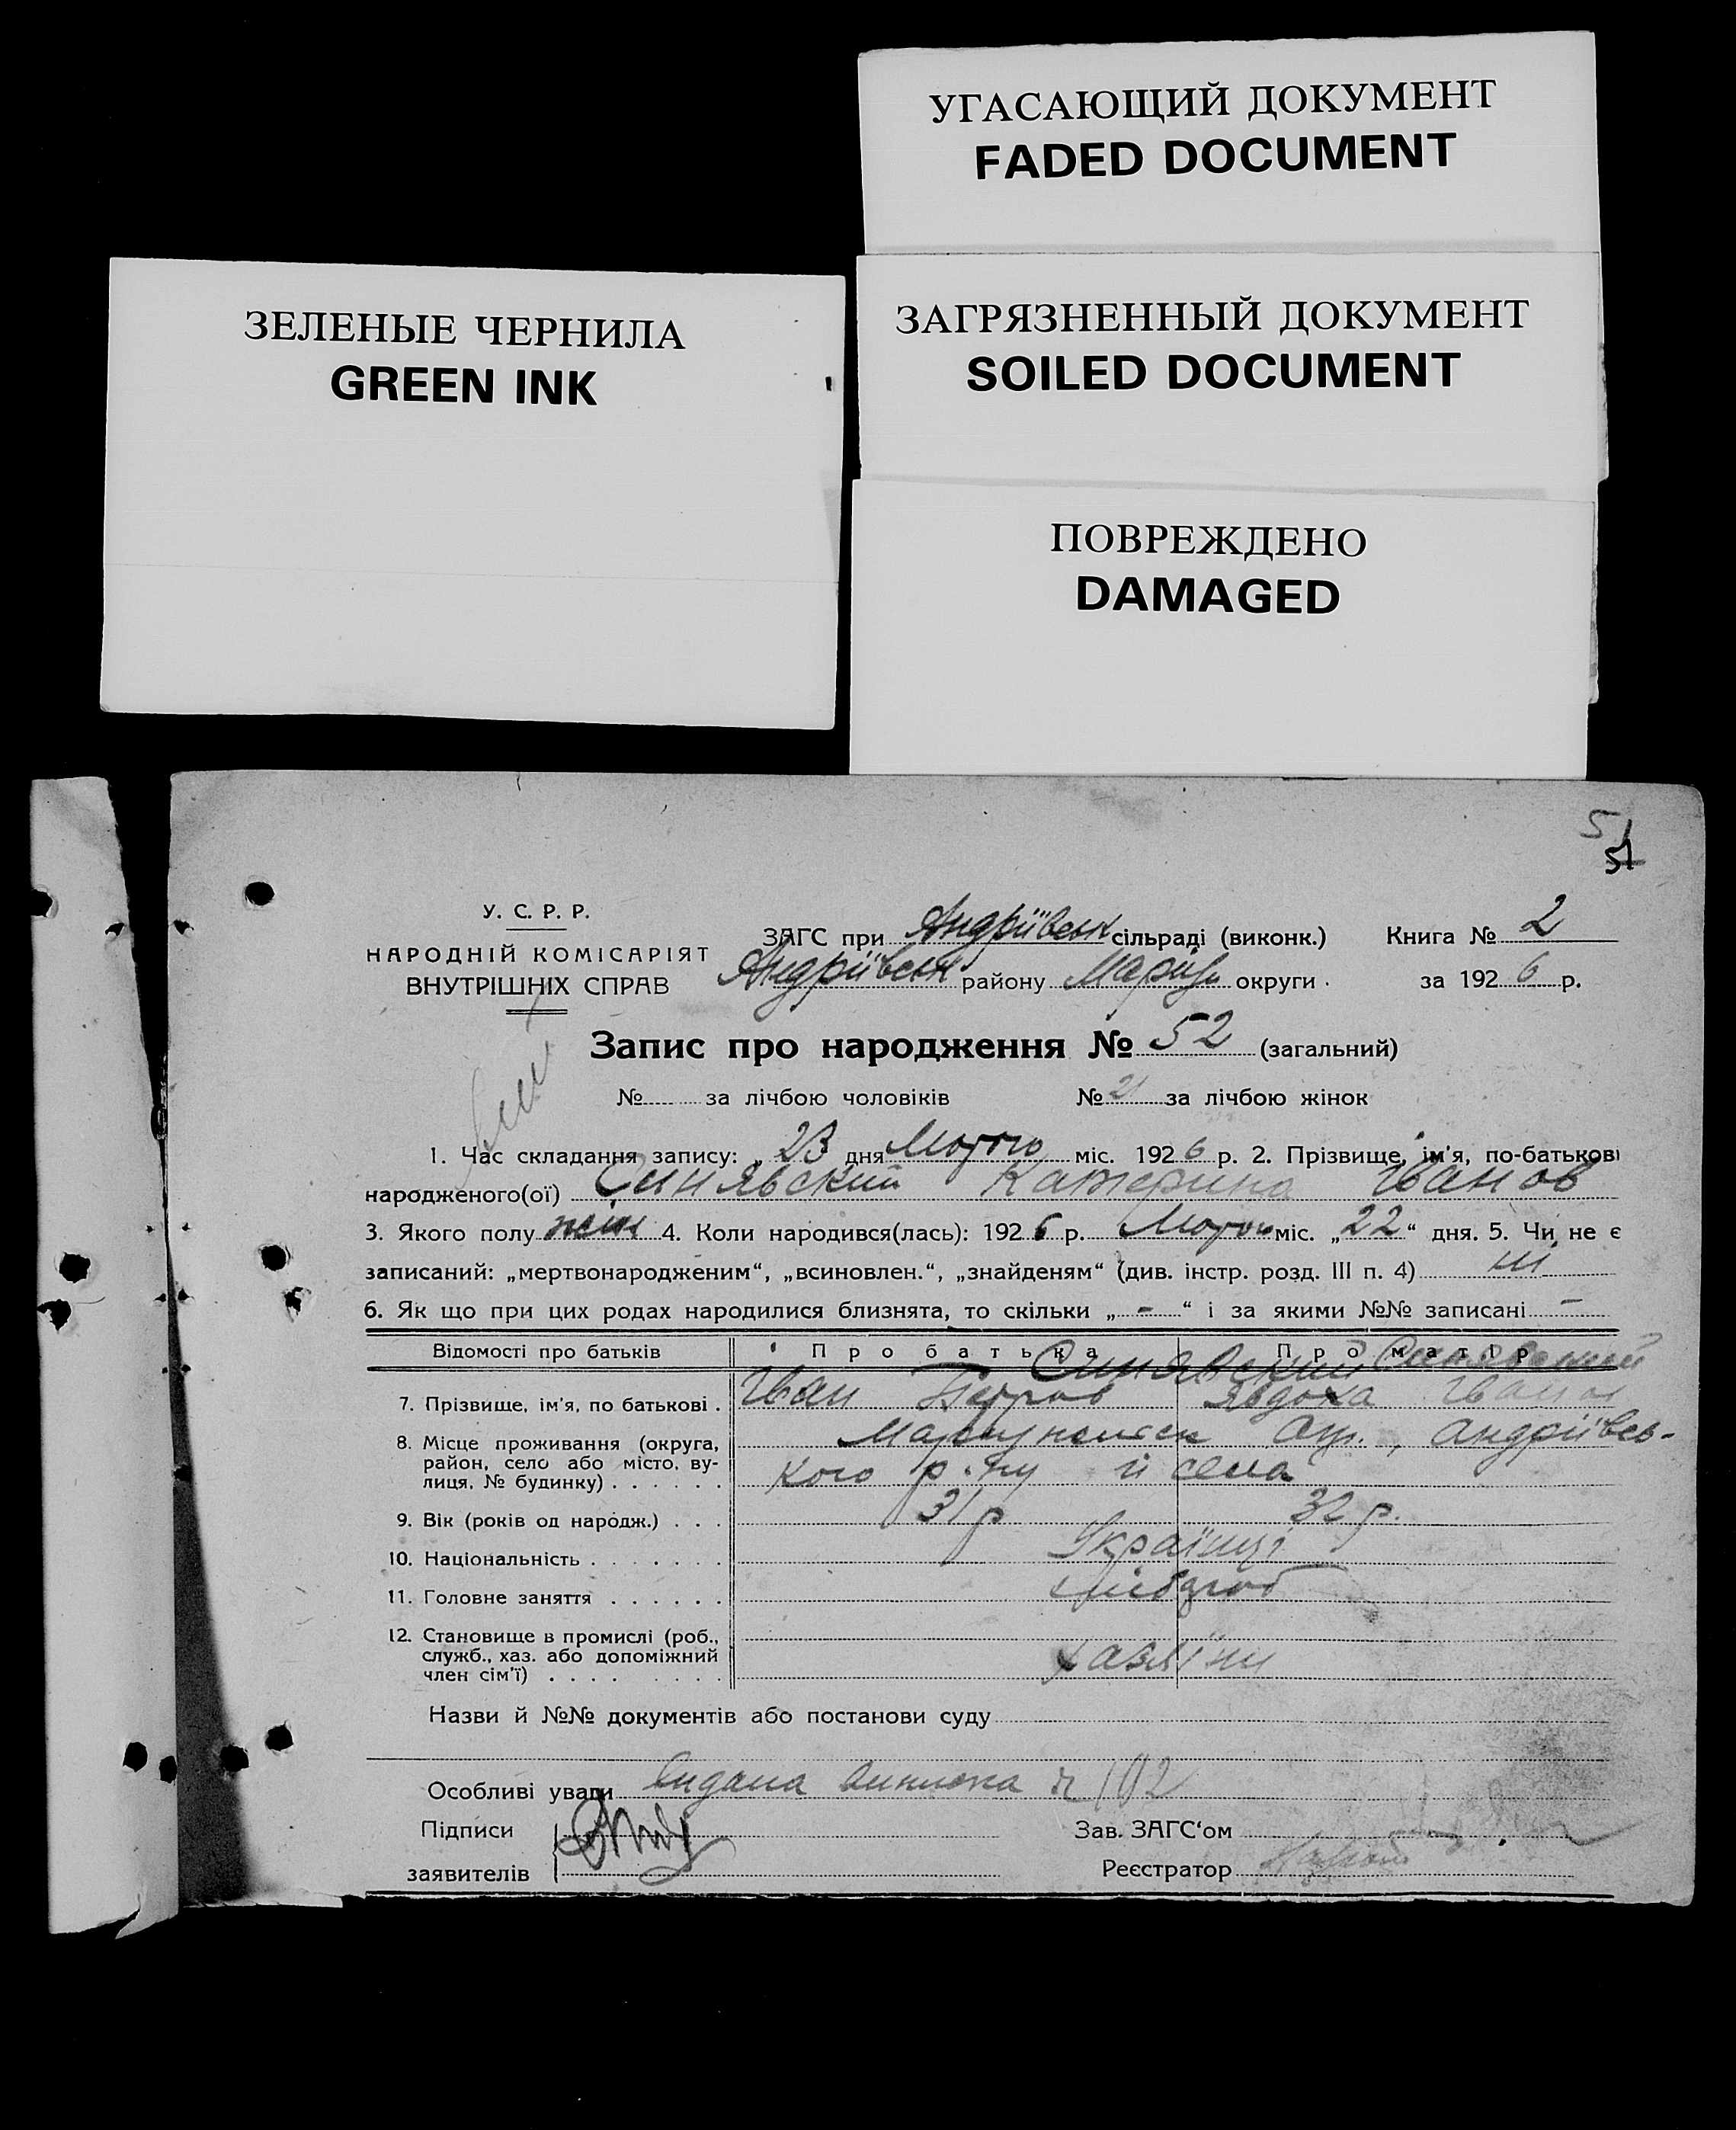 УГАСАЮЩИЙ ДОКУМЕНТ
FADED DOCUMENT
ЗЕЛЕНЫЕ ЧЕРНИЛА
GREEN INK
ЗАГРЯЗНЕННЫЙ ДОКУМЕНТ
SOILED DOCUMENT
ПОВРЕЖДЕНО
DAMAGED
51
51
У. С. Р. Р.
НАРОДНІЙ КОМІСАРІЯТ
ВНУТРІШНІХ СПРАВ
ЗАГС при Андріївськ сільраді (виконк.) Книга № 2
Андріївськ району Маріуп округи за 1926 р.
Запис про народження № 52 (загальний)
№ за лічбою чоловіків № 21 за лічбою жінок
1. Час складання запису: „ 23 дня Лютого міс. 1926 р. 2. Прізвище, ім'я, по-батькові
народженого(ої) Синявский Катерина Іванов
3. Якого полу жін 4. Коли народився(лась): 1926 р. Лютого міс. „22“ дня. 5. Чи не є
записаний: „мертвонародженим“, „всиновлен.“, „знайденям“ (див. інстр. розд. III п. 4) ні
6. Як що при цих родах народилися близнята, то скільки „ - “ і за якими №№ записані -
Відомості про батьків Про батька Про матір
Синявский Синявский
7. Прізвище, ім'я, по батькові . Іван Петров Явдоха Іванов
8. Місце проживання (округа, район, село або місто, вулиця, № будинку) . . . . . .
Окр., Андріївсь-
кого р-ну й села
9. Вік (років од народж.) . . . 31 р 32 р.
10. Національність . . . . . . . Українці
11. Головне заняття . . . . . . хлібороб
12. Становище в промислі (роб.,
служб., хаз. або допоміжний
член сім'ї) . . . . . . . . хазяїни
Назви й №№ документів або постанови суду
Особливі уваги Видана виписка № 102
Підписи
заявителів
Зав. ЗАГС‘ом
Реєстратор